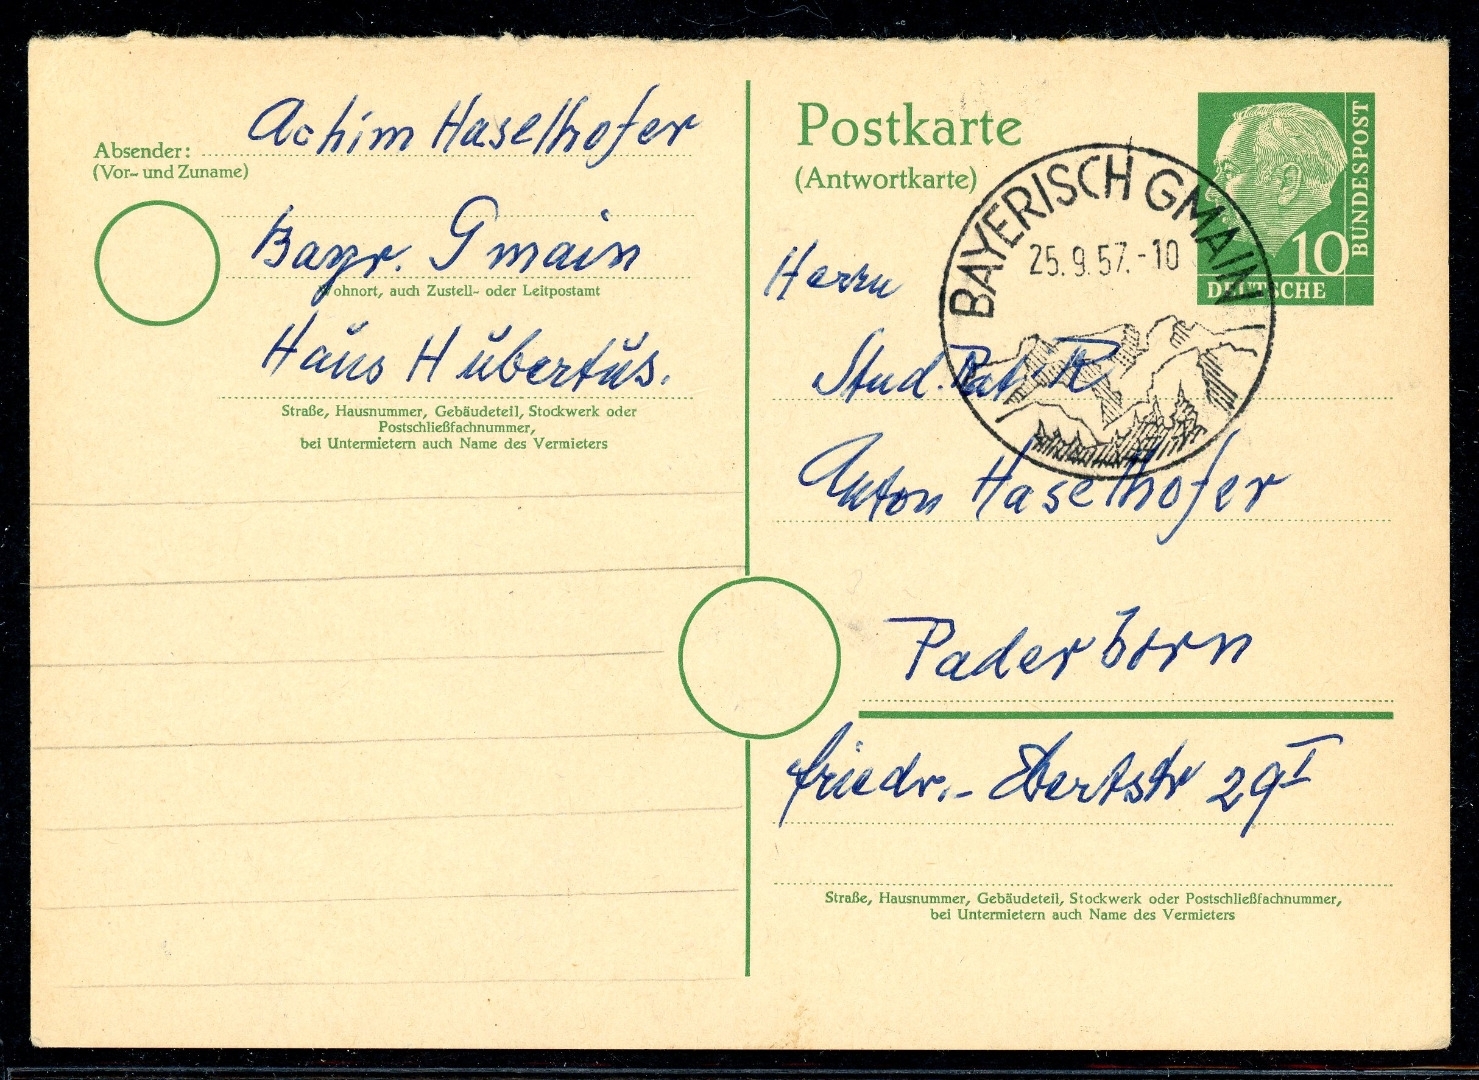 Absender: Achim Haselhofer
(Vor- und Zuname)
Bayr. Gmain
Wohnort, auch Zustell- oder Leitpostamt
Haus Hubertus.
Straße, Hausnummer, Gebäudeteil, Stockwerk oder
Postschließfachnummer,
bei Untermietern auch Name des Vermieters
Postkarte
(Antwortkarte)
10
DEUTSCHE
BUNDESPOST
BAYERISCH GMAIN
25.9.57.-10
Herrn
Stud.Rat
Anton Haselhofer
Paderborn
Friedr.- Ebertstr 29 I
Straße, Hausnummer, Gebäudeteil, Stockwerk oder Postschließfachnummer,
bei Untermietern auch Name des Vermieters